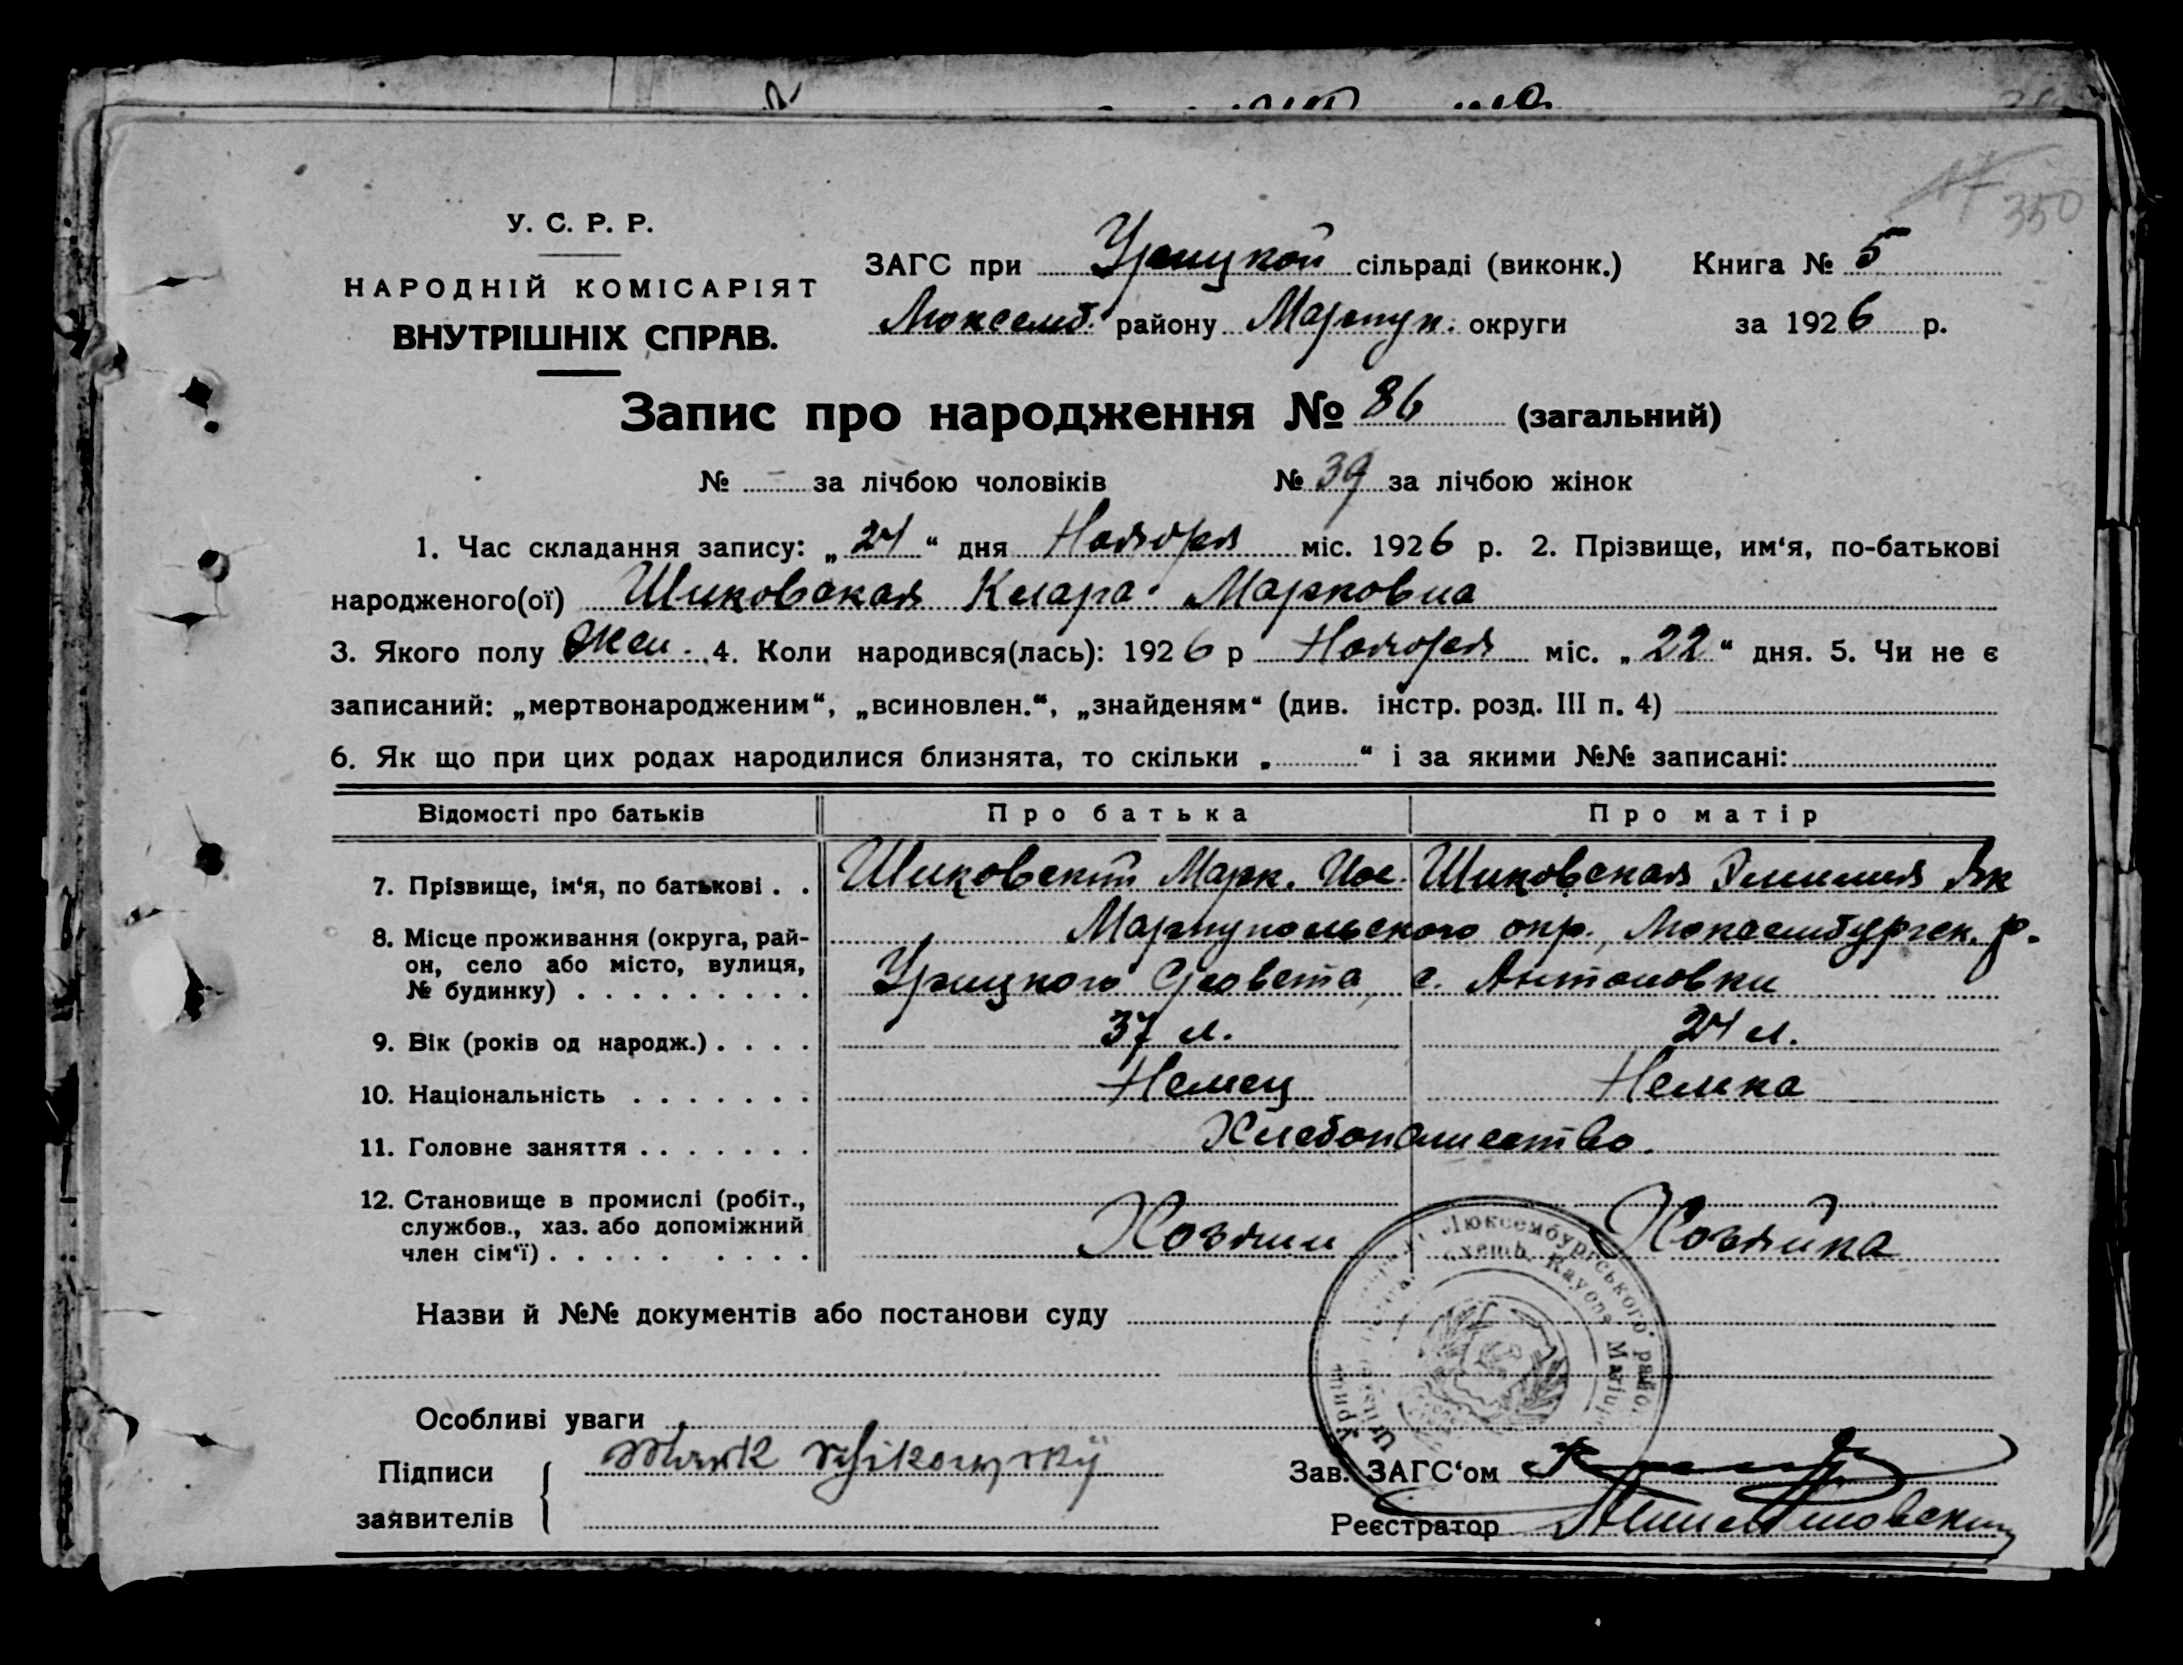 350
У. С. Р. Р.
НАРОДНІЙ КОМІСАРІЯТ
ВНУТРІШНІХ СПРАВ.
ЗАГС при Урицкой сільраді (виконк.) Книга № 5
Люксемб. району Мариуп. округи за 1926 р.
Запис про народження № 86 (загальний)
№ – за лічбою чоловіків № 39 за лічбою жінок
1. Час складання запису: „24“ дня Ноября міс. 1926 р. 2. Прізвище, им‘я, по-батькові
народженого(ої) Шиковская Клара Марковна
3. Якого полу жен. 4. Коли народився(лась): 1926 р Ноября міс. „22“ дня. 5. Чи не є
записаний: „мертвонародженим“, „всиновлен.“, „знайденям“ (див. інстр. розд. III п. 4)
6. Як що при цих родах народилися близнята, то скільки „ “ і за якими №№ записані:
Відомості про батьків Про батька Про матір
7. Прізвище, ім‘я, по батькові . . Шиковский Марк. Иос. Шиковская Эмилия Як
8. Місце проживання (округа, рай- Мариупольского окр., Люксембургск. р.
он, село або місто, вулиця,
№ будинку) . . . . . . . . . Урицкого С/совета, с. Антоновки
9. Вік (років од народж.) . . . . 37 л. 24 л.
10. Національність . . . . . . . Немец Немка
11. Головне заняття . . . . . . . Хлебопашество.
12. Становище в промислі (робіт.,
службов., хаз. або допоміжний
член сім‘ї) . . . . . . . . . . Хозяин Хозяйка
Назви й №№ документів або постанови суду
Люксембурзського район.
Rayons Mariup
Особливі уваги
Підписи Mark Schikowskÿ Зав. ЗАГС‘ом
заявителів Реєстратор